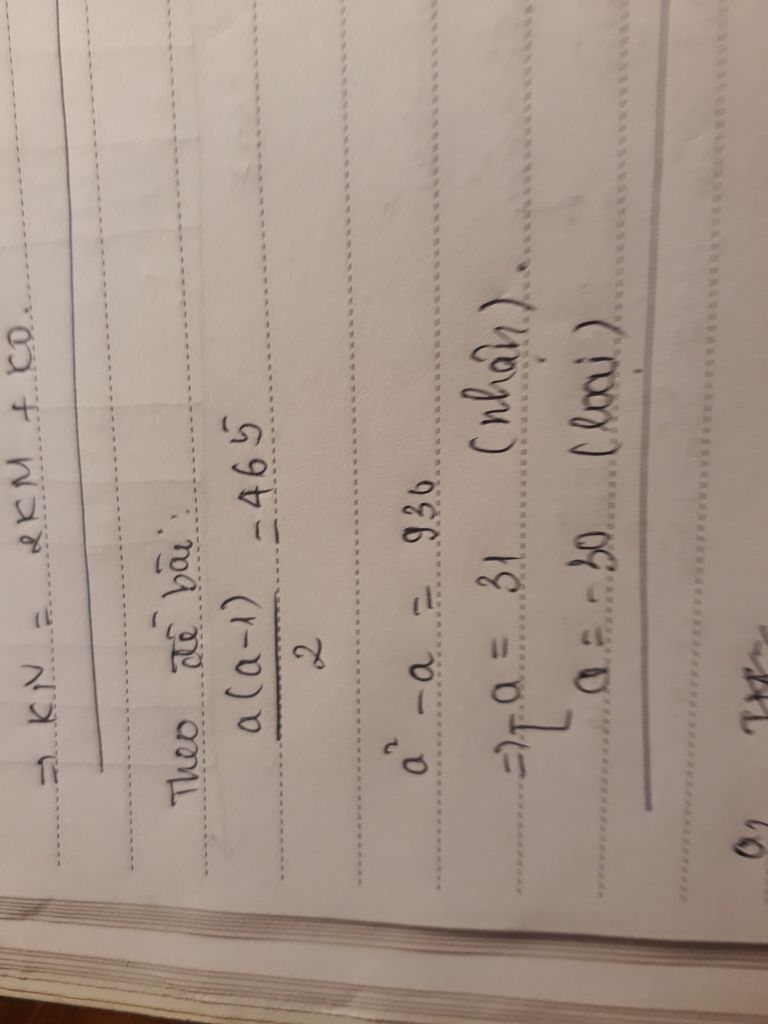 => KN = 2KM + KO.
Theo đề bài:
a(a-1) = 465
2
a² - a = 930
=> [ a = 31 (nhận).
a = -30 (loại)
a,